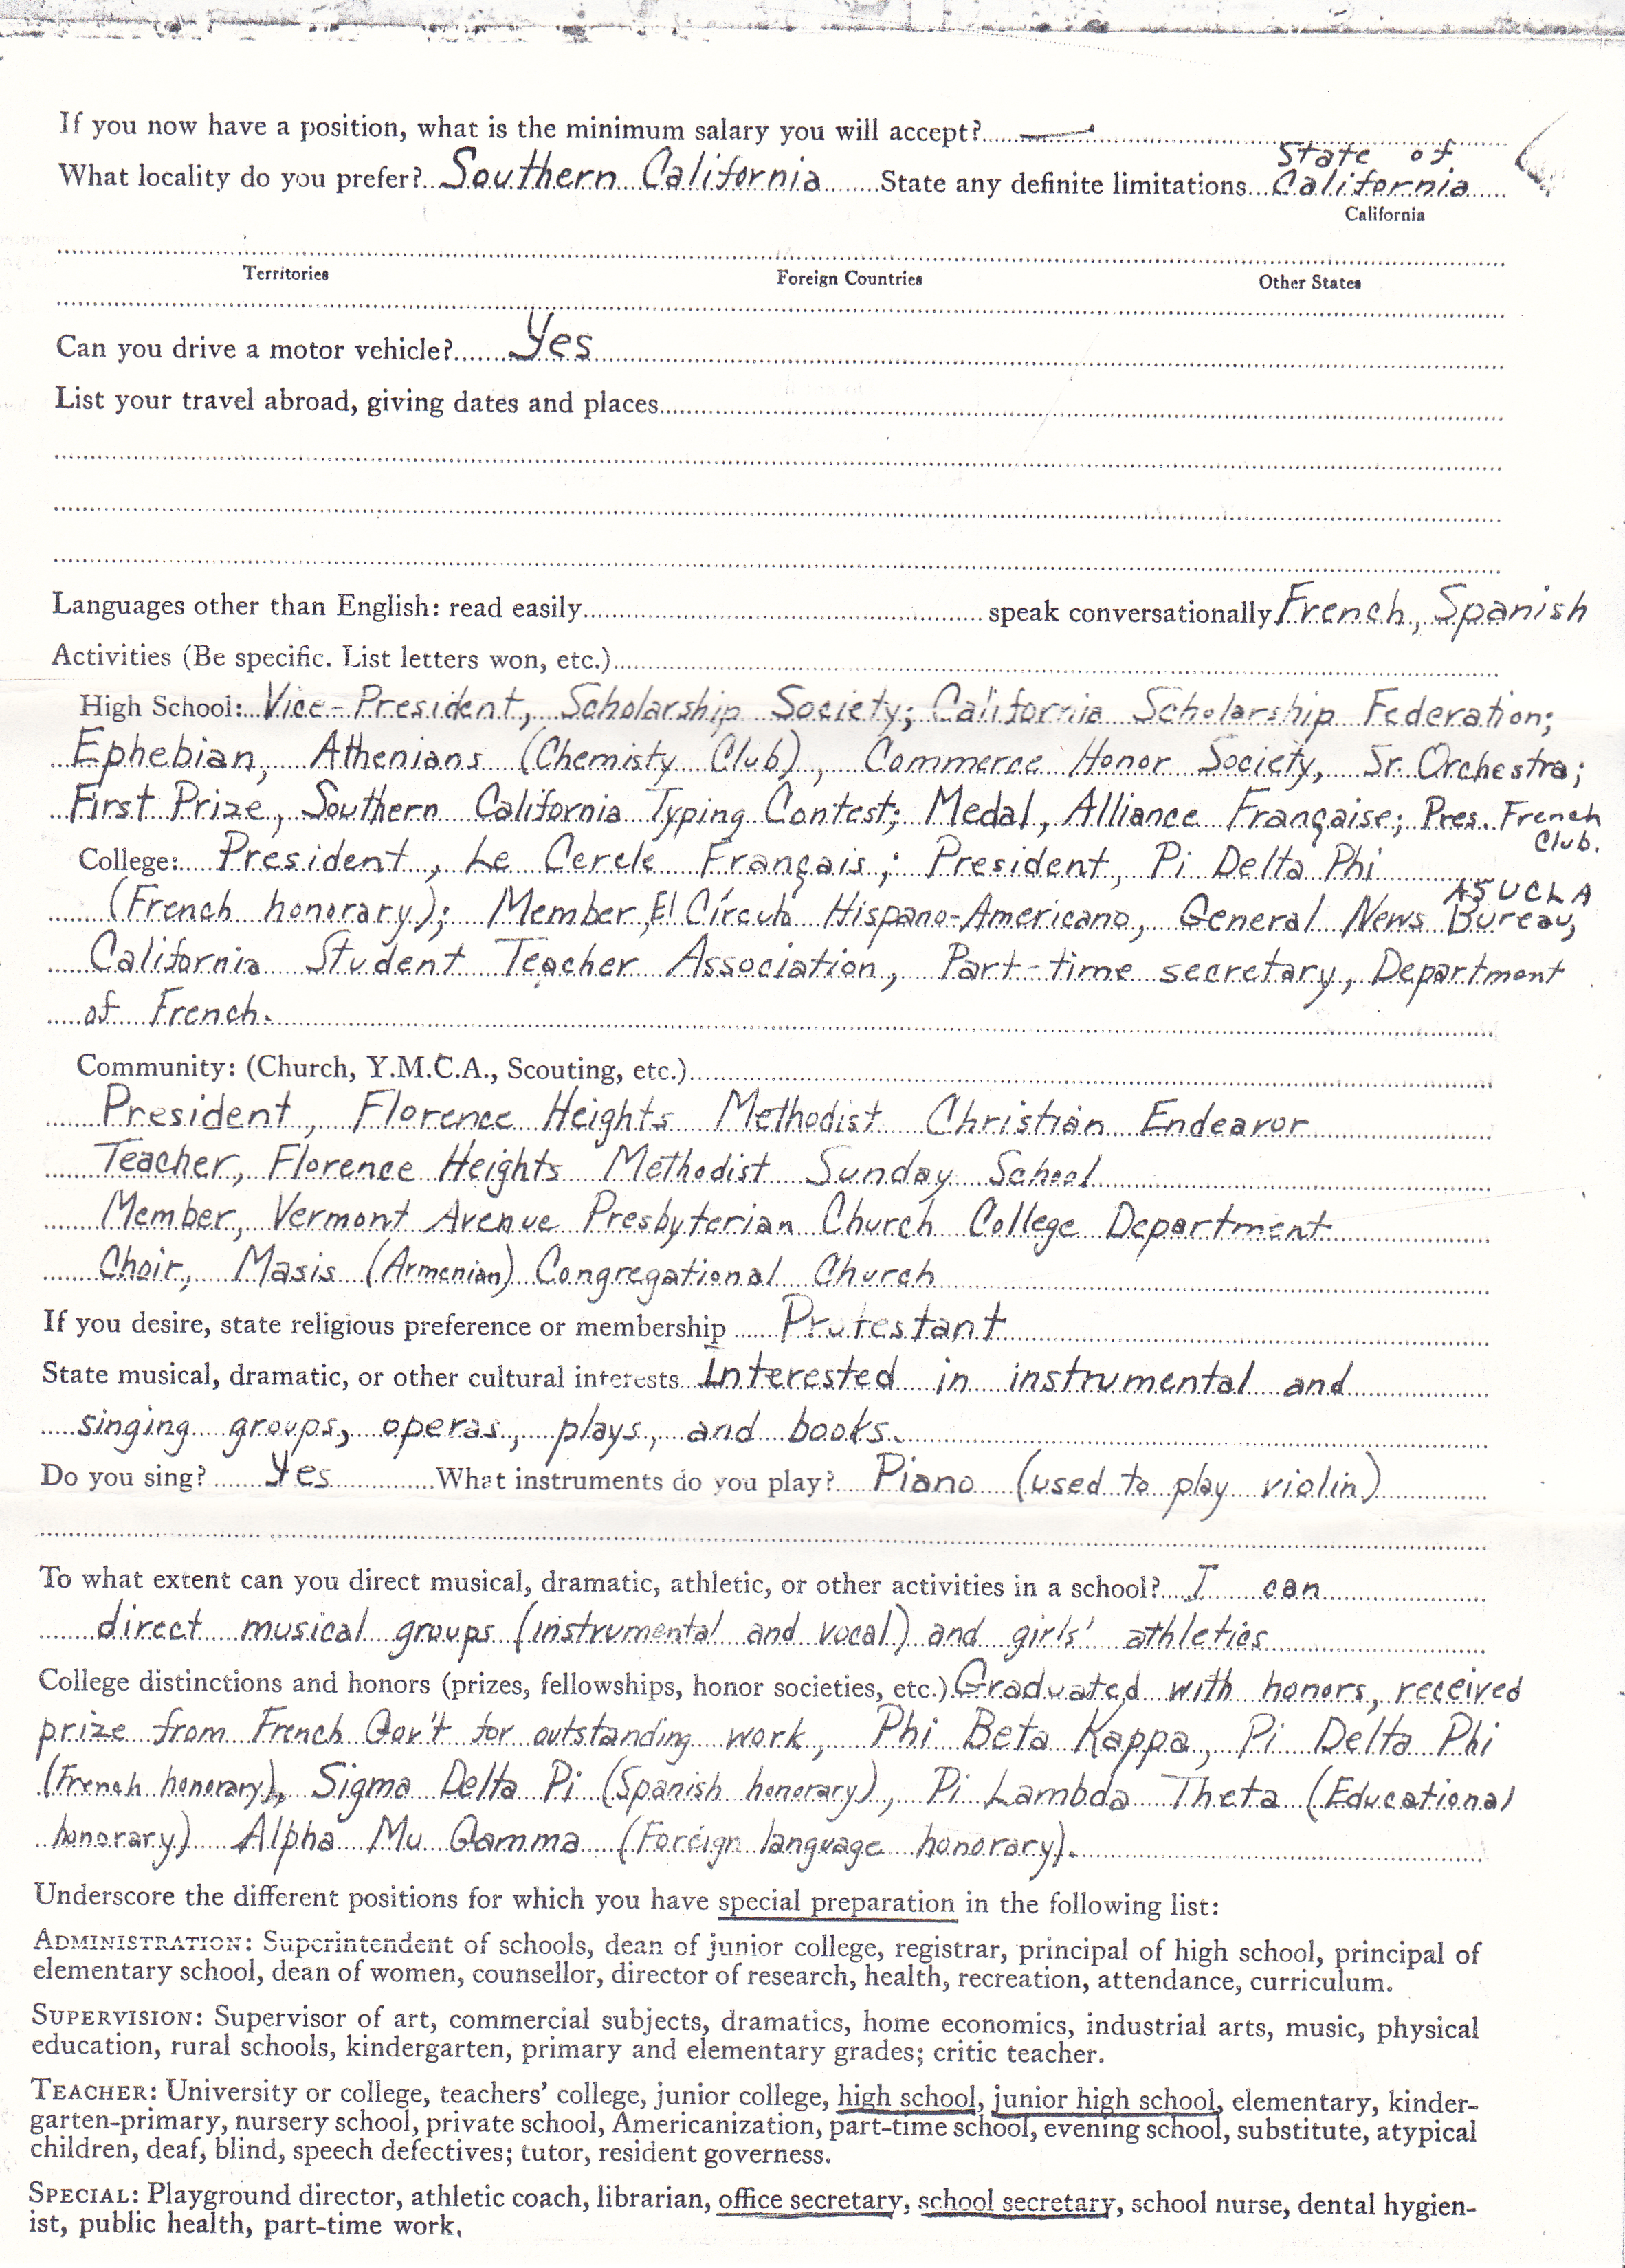 If you now have a position, what is the minimum salary you will accept? —
What locality do you prefer? Southern California State any definite limitations State of California
California
Territories Foreign Countries Other States
Can you drive a motor vehicle? Yes
List your travel abroad, giving dates and places
Languages other than English: read easily speak conversationally French, Spanish
Activities (Be specific. List letters won, etc.)
High School: Vice-President, Scholarship Society; California Scholarship Federation;
Ephebian, Athenians (Chemisty Club), Commerce Honor Society, Sr. Orchestra;
First Prize, Southern California Typing Contest; Medal, Alliance Française; Pres. French Club.
College: President, Le Cercle Français; President, Pi Delta Phi
(French honorary); Member, El Círculo Hispano-Americano, General News Bureau, ASUCLA
California Student Teacher Association, Part-time secretary, Department
of French.
Community: (Church, Y.M.C.A., Scouting, etc.)
President, Florence Heights Methodist Christian Endeavor
Teacher, Florence Heights Methodist Sunday School
Member, Vermont Avenue Presbyterian Church College Department
Choir, Masis (Armenian) Congregational Church
If you desire, state religious preference or membership Protestant
State musical, dramatic, or other cultural interests Interested in instrumental and
singing groups, operas, plays, and books.
Do you sing? Yes What instruments do you play? Piano (used to play violin)
To what extent can you direct musical, dramatic, athletic, or other activities in a school? I can
direct musical groups (instrumental and vocal) and girls' athletics
College distinctions and honors (prizes, fellowships, honor societies, etc.) Graduated with honors, received
prize from French Gov't for outstanding work, Phi Beta Kappa, Pi Delta Phi
(French honorary), Sigma Delta Pi (Spanish honorary), Pi Lambda Theta (Educational
honorary) Alpha Mu Gamma (Foreign language honorary).
Underscore the different positions for which you have special preparation in the following list:
ADMINISTRATION: Superintendent of schools, dean of junior college, registrar, principal of high school, principal of
elementary school, dean of women, counsellor, director of research, health, recreation, attendance, curriculum.
SUPERVISION: Supervisor of art, commercial subjects, dramatics, home economics, industrial arts, music, physical
education, rural schools, kindergarten, primary and elementary grades; critic teacher.
TEACHER: University or college, teachers' college, junior college, high school, junior high school, elementary, kinder-
garten-primary, nursery school, private school, Americanization, part-time school, evening school, substitute, atypical
children, deaf, blind, speech defectives; tutor, resident governess.
SPECIAL: Playground director, athletic coach, librarian, office secretary, school secretary, school nurse, dental hygien-
ist, public health, part-time work.